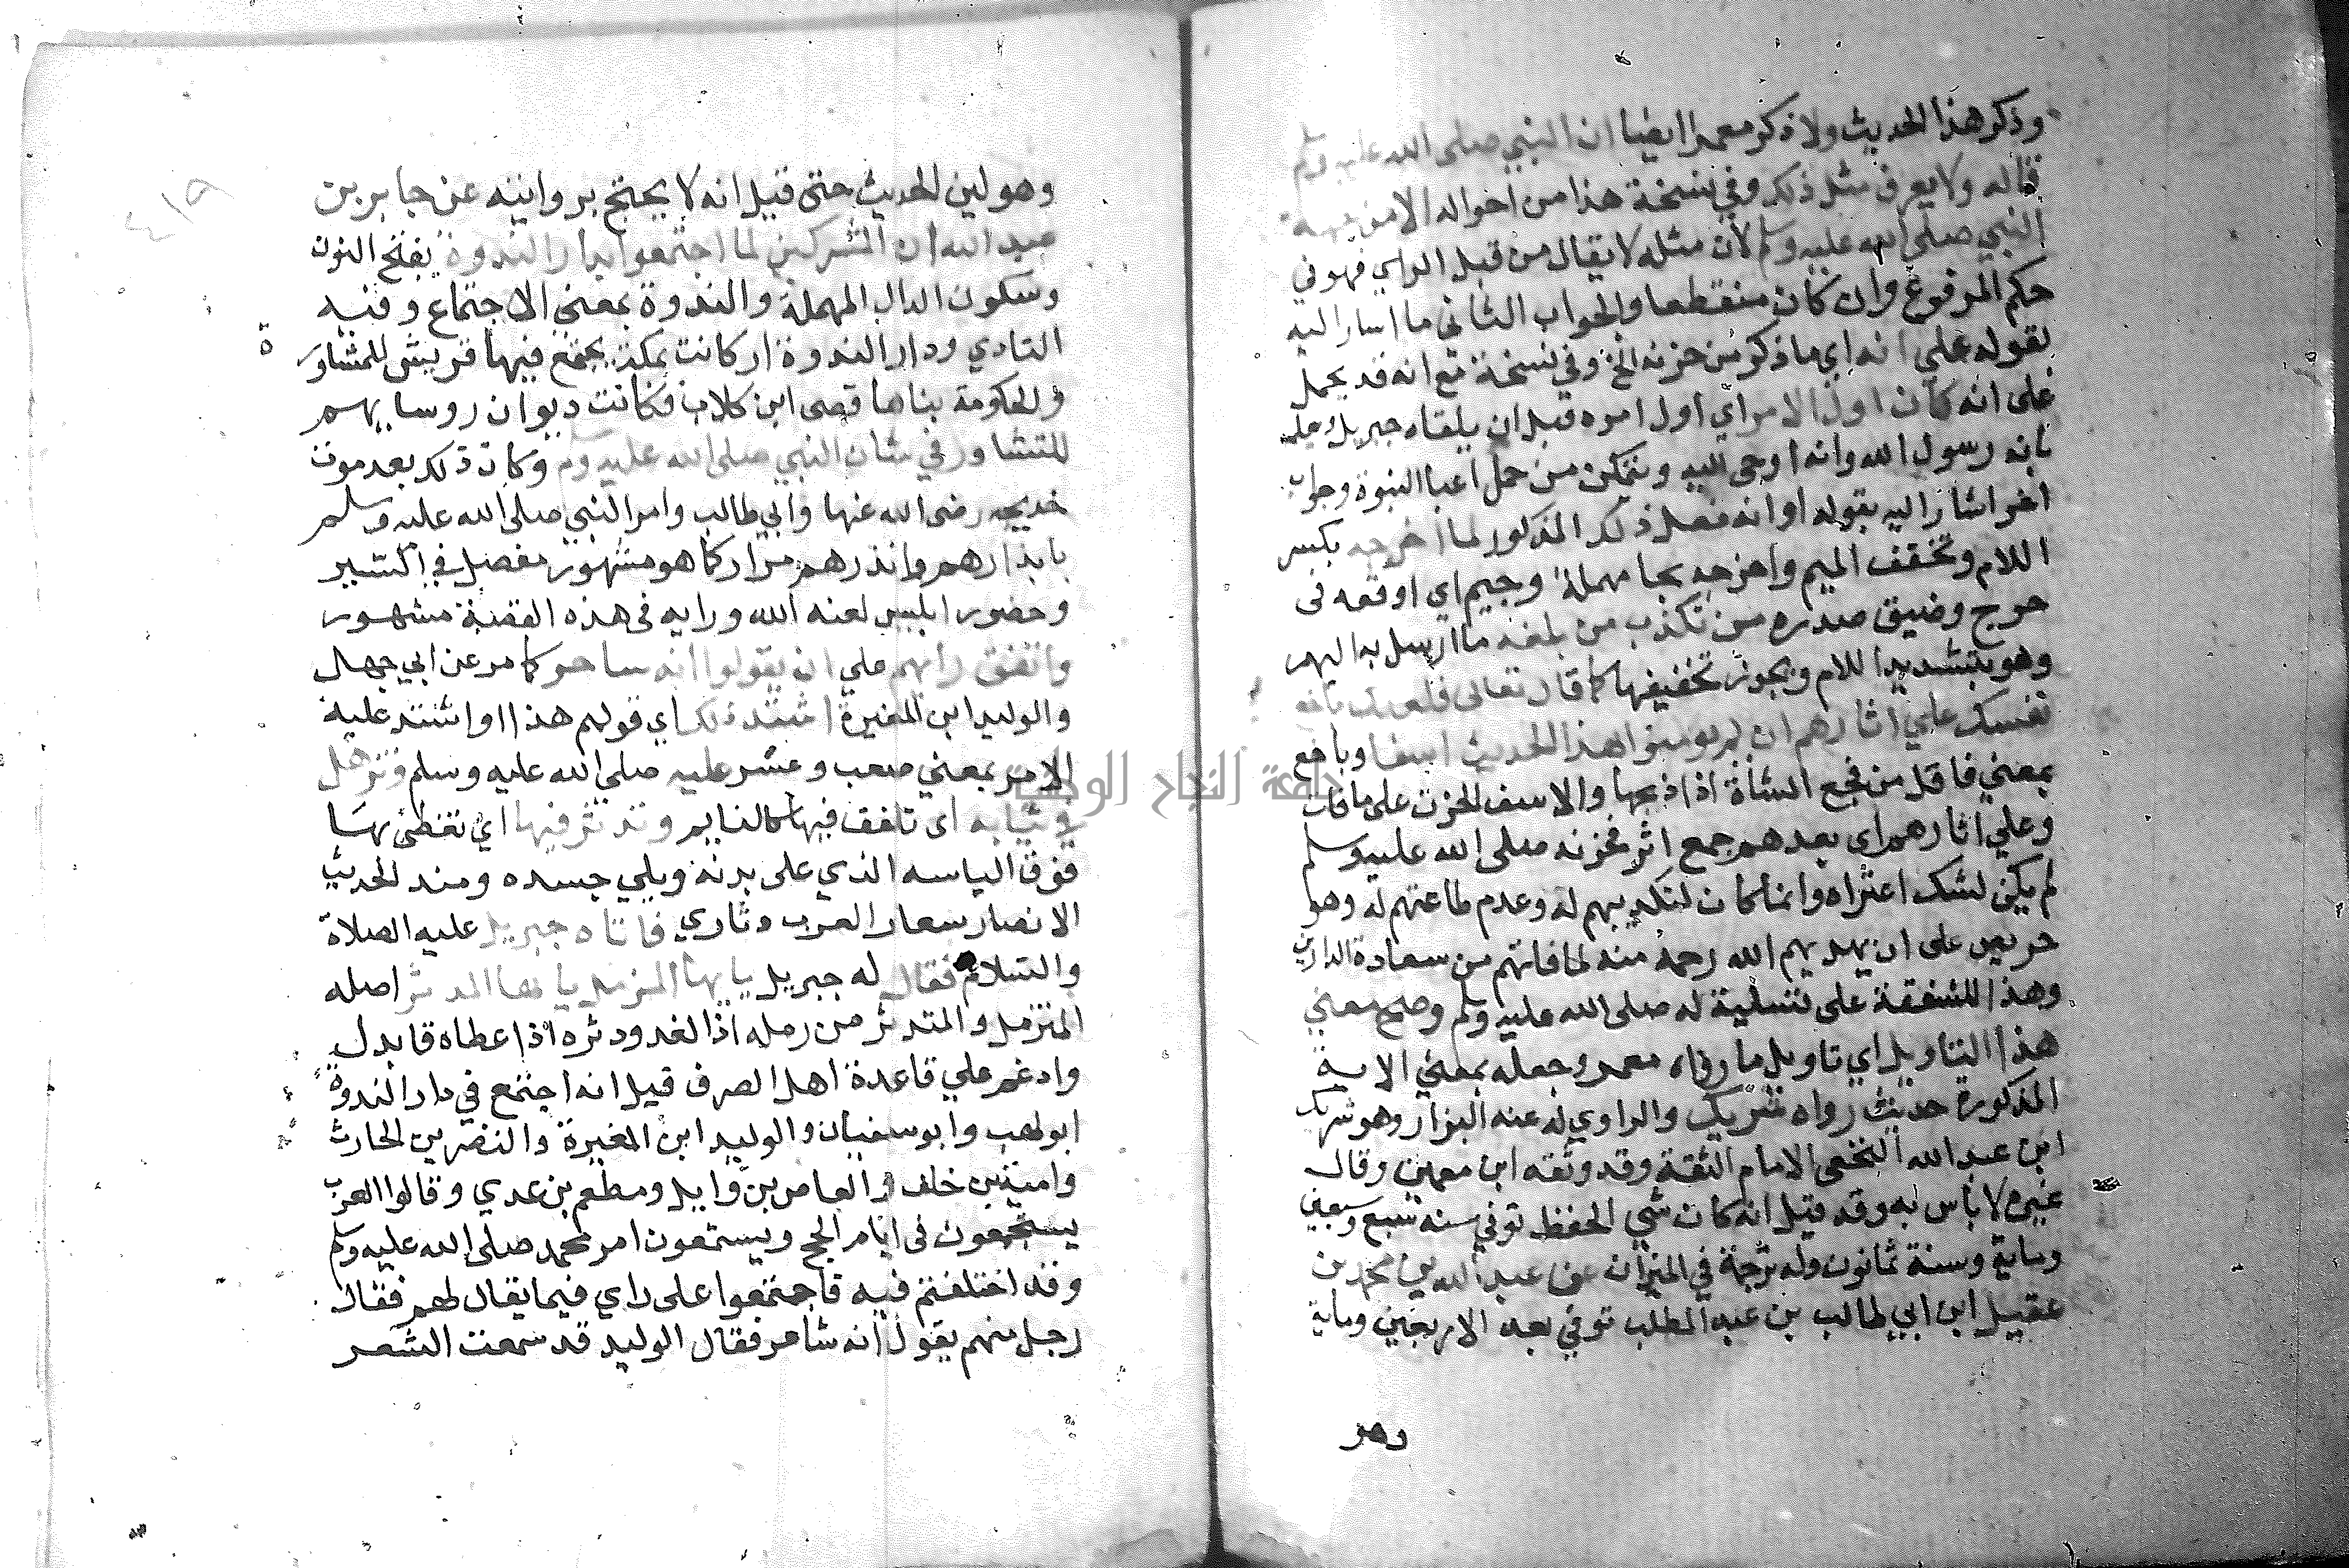 وذكر هذا الحديث ولا ذكر معمر ايضا ان النبي صلى الله عليه وسلم
قاله ولا يعرف مثل ذلك وفي نسخة هذا من احواله الا من جهة
النبي صلى الله عليه وسلم لان مثله لا يقال من قبل الراي فهو في
حكم المرفوع وان كان منقطعا والجواب الثاني ما اسار اليه
بقوله علي انه اي ما ذكر من حزنه الخ وفي نسخة مع انه قد يحمل
على انه كان اول الامر اي اول امره قبل ان يلقاه جبريل
بانه رسول الله وانه اوحى اليه ويتمكن من حمل اعبا النبوة وجواب
اخر اشار اليه بقوله او انه فعل ذلك المذكور لما اخرجه بكسر
اللام وتخفف الميم واحرجه بحا مهملة وجيم اي اوقعه فى
حرج وضيق صدره من تكذب من بلغه ما ارسل به اليهم
وهو بتشديد اللام ويجوز تخفيفها كما قال تعالى فلعلك باخع
نفسك علي اثارهم ان لم يومنوا هذا الحديث اسفا وباخع
بمعني قاتل من بخع الشاة اذا ذبحها والاسف الحزن على ما فات
وعلي اثارهم اى بعدهم جمع اثر فحزنه صلى الله عليه وسلم
لم يكن لشك اعتراه وانما كان لتكذيبهم له وعدم طاعتهم له وهو
حريص على ان يهديهم الله رحمة منه لما فاتهم من سعادة الدارين
وهذا للشفقة على تسلية له صلى الله عليه وسلم وصحح معني
هذا التاويل اي تاويل ما رواه معمر وجعله بمعني الاية
المذكورة حديث رواه شريك والراوي له عنه البزار وهو شريك
ابن عبد الله النخعى الامام الثقة وقد وثقه ابن معين وقال
غيره لا باس به وقد قيل انه كان شي الحفظ توفي سنه سبع وسبعين
وماية وسنة ثمانون وله ترجمة في الميزان عن عبد الله بن محمد بن
عقيل ابن ابي طالب بن عبد المطلب توفي بعد الاربعين وماية
وهو
وهو لين الحديث حتى قيل انه لا يحتج بروايته عن جابر بن
عبد الله ان المشركين لما اجتمعوا بدار الندوة بفتح النون
وسكون الدال المهملة والندوة بمعنى الاجتماع ومنه
النادي ودار الندوة دار كانت بمكة يجتمع فيها قريش للمشاورة
والحكومة بناها قصى ابن كلاب فكانت ديوان روسايهم
للتشاور في شان النبي صلى الله عليه وسلم وكان ذلك بعد موت
خديجه رضى الله عنها وابي طالب وامر النبي صلى الله عليه وسلم
بانذارهم وانذرهم مرارا كما هو مشهور مفصل في السير
وحضور ابليس لعنه الله ورايه فى هذه القصة مشهور
واتفق رايهم علي ان يقولوا انه ساحر كما مر عن ابي جهل
والوليد ابن المغيرة اشتد ذلك اي قولهم هذا او اشتد عليه
الامر بمعني صعب وعسر عليه صلى الله عليه وسلم فتزمل
في ثيابه اى تلفف فيها كالنايم وتدثر فيها اي تغطى بها
فوق الياسه الذي على بدنه ويلي جسده ومنه الحديث
الانصار سعار العرب دثاري فاتاه جبريل عليه الصلاة
والسلام فقال له جبريل يا ايها المزمل يا ايها المدثر اصله
المتزمل والمتدثر من زمله اذا لفه ودثره اذا غطاه فابدل
وادغم علي قاعدة اهل الصرف قيل انه اجتمع في دار الندوة
ابو لهب وابو سفيان والوليد ابن المغيرة والنضر بن الحارث
وامية بن خلف والعاص بن وايل ومطعم بن عدي وقالوا العرب
يستجمعون فى ايام الحج ويستمعون امر محمد صلى الله عليه وسلم
وقد اختلفتم فيه فاجتمعوا على راي فيما يقال لهم فقال
رجل منهم يقول انه شاعر فقال الوليد قد سمعت الشعر
جامعة النجاح الوطنية